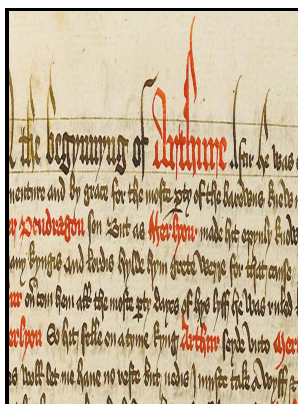 the begynnyng of Arthure Aftir he was
venture and by grace for the moste pty of the barowns knew
Pendragon son But as Merlyon made hit opynly know
kyngis and lordis hylde hym grete werre for that cause
on com hem all the moste pty dayes of hys lyff he was ruled
So hit felle on a tyme kyng Arthur seyde unto
woll let me have no reste but nedis I muste take a wyff